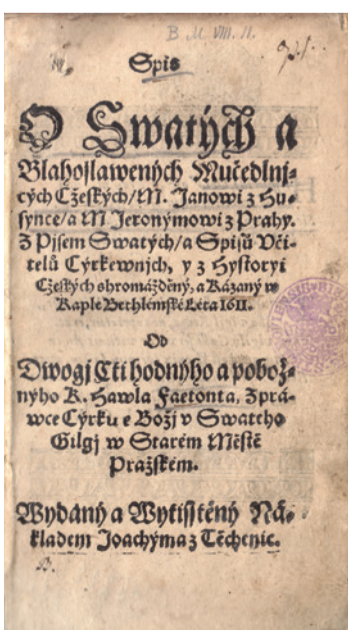 B M VIII. 11.
Spis
O Swatých a
Blahoslawených Mučedlnj-
cých Cžeských/M. Janowi z Hu-
synce/a M Jeronýmowi z Prahy.
Z Pjsem Swatých/a Spisů Vči-
telů Cýrkewnjch, y z Hystoryi
Cžeských shromážděný, a Kázaný w
Kaple Bethlémské Léta 1611.
Od
Dwogj Cti hodnýho a pobož-
nýho K. Hawla Faetonta, Zprá-
wce Cýrku e Božj v Swattho
Gilgj w Starém Městě
Pražském.
Wydaný a Wytisstěný Ná-
kladem Joachýma z Těchenic.